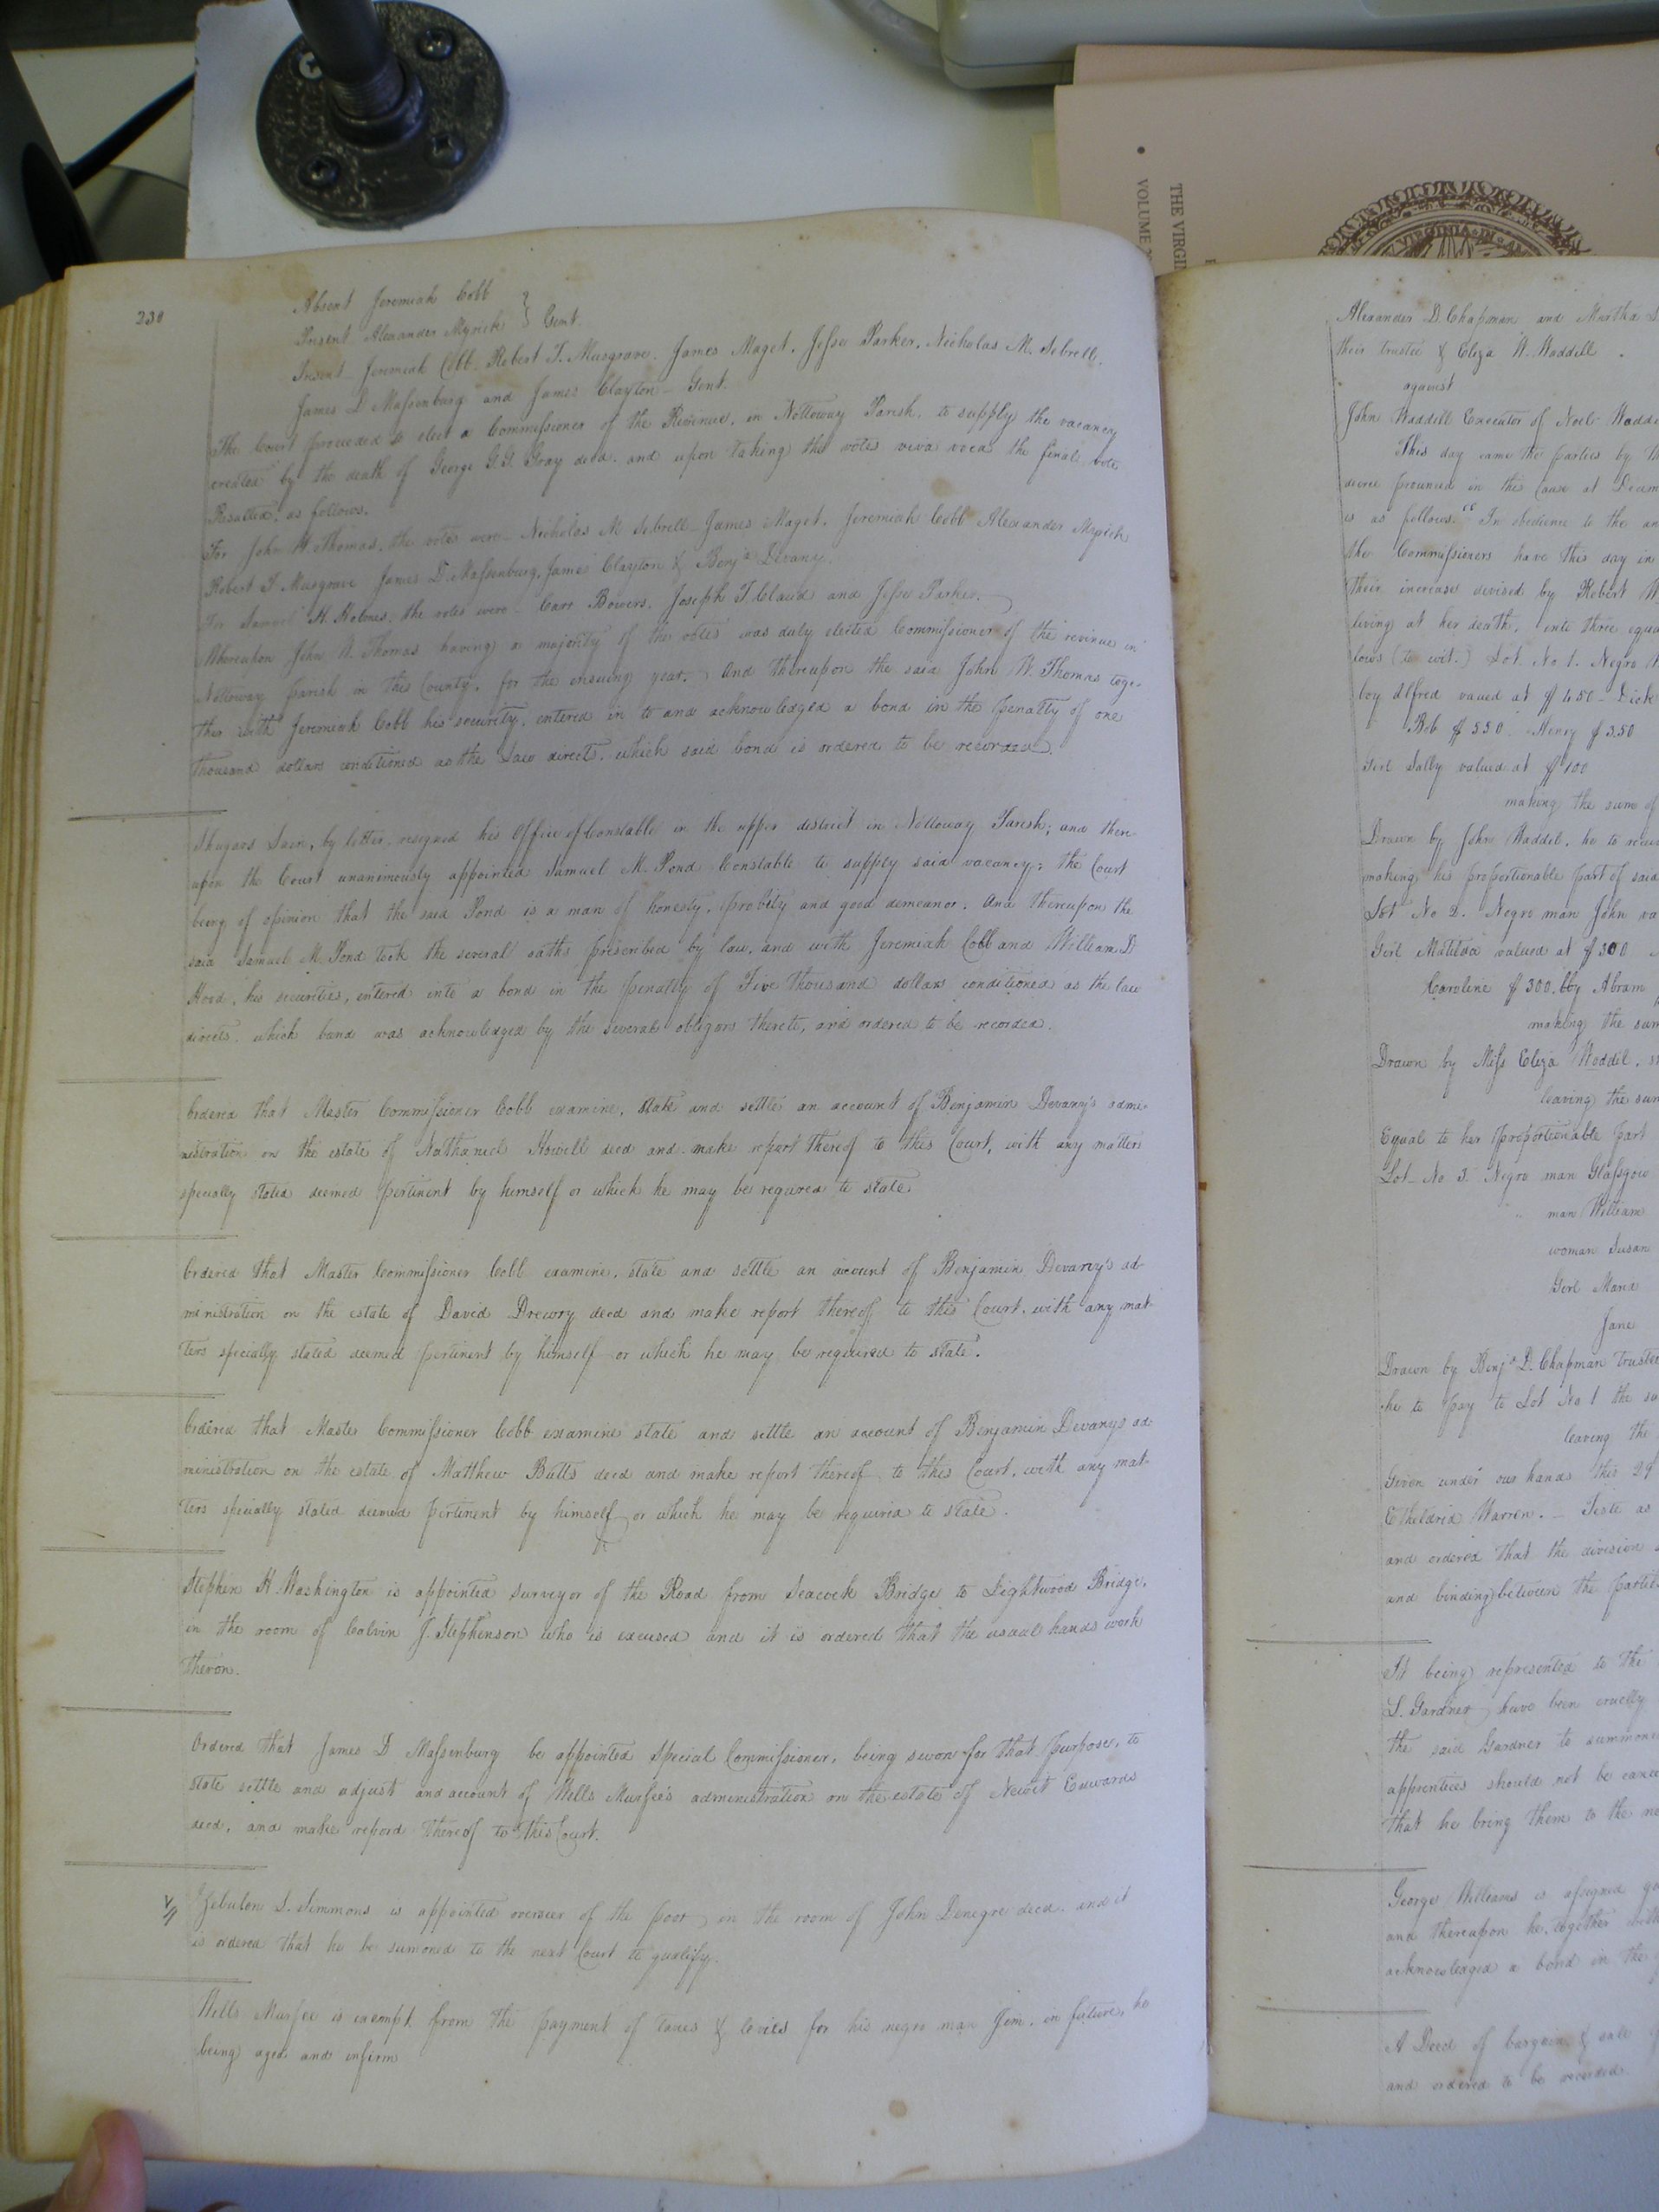 230
Absent Jeremiah Cobb
Present Alexander Myrick } Gent.
Present Jeremiah Cobb, Robert T. Musgrave, James Maget, Jesse Parker, Nicholas M. Sebrell,
James D Massenburg and James Clayton Gent.
The Court proceeded to elect a Commissioner of the Revenue, in Nottoway Parish, to supply the vacancy
created by the death of George G.G. Gray decd. and upon taking the votes viva voca the final vote
Resulted, as follows.
For John W. Thomas, the votes were Nicholas M Sebrell James Maget, Jeremiah Cobb Alexander Myrick
Robert T Musgrave James D. Massenburg, James Clayton & Benja Devany.
For Samuel H. Holmes, the votes were Carr Bowers, Joseph T. Claud and Jesse Parker.
Whereupon John W. Thomas having a majority of the votes was duly elected Commissioner of the revinue in
Nottoway Parish in this County, for the ensuing year. And thereupon the said John W. Thomas toge-
ther with Jeremiah Cobb his security, entered in to and acknowledged a bond in the penalty of one
thousand dollars conditioned as the Law directs, which said bond is ordered to be recorded.
by letter, resigned his Office of Constable in the upper district in Nottoway Parish; and there
upon the Court unanimously appointed Samuel M. Pond Constable to supply said vacancy; the Court
being of opinion that the said Pond is a man of honesty, probity and good demeanor. And thereupon the
said Samuel M. Pond took the several oaths prescribed by law, and with Jeremiah Cobb and William D
Hood, his securities, entered into a bond in the penalty of Five thousand dollars conditioned as the law
directs. which bond was acknowledged by the several obligors thereto, and ordered to be recorded.
Ordered that Master Commissioner Cobb examine, state and settle an account of Benjamin Devany's admi-
nistration on the estate of Nathaniel Howell decd and make report thereof to this Court, with any matters
specially stated deemed pertinent by himself or which he may be required to state.
Ordered that Master Commissioner Cobb examine, state and settle an account of Benjamin Devany's ad-
ministration on the estate of David Drewry decd and make report thereof to this Court, with any mat-
ters specially stated deemed pertinent by himself or which he may be required to state.
Ordered that Master Commissioner Cobb examine state and settle an account of Benjamin Devany's ad-
ministration on the estate of Matthew Butts decd and make report thereof to this Court, with any mat-
ters specially stated deemed pertinent by himself or which he may be required to state.
Stephen H. Washington is appointed Surveyor of the Road from Seacock Bridge to Lightwood Bridge,
in the room of Calvin J. Stephenson who is excused and it is ordered that the usual hands work
theron.
Ordered that James D Massenburg be appointed Special Commissioner, being sworn for that purpose, to
state settle and adjust and account of Wells Murfee's administration on the estate of Newit Edwards
decd, and make repord thereof to this Court.
Zebulon S. Simmons is appointed overseer of the poor in the room of John Denegre decd. and it
is ordered that he be sumoned to the next Court to qualify.
Wells Murfee is exempt from the payment of taxes & levies for his negro man Jim, in future, he
being aged and infirm
THE VIRGI
VOLUME
VIRGINIA
Alexander D. Chapman and Martha
their trustee & Eliza W. Waddill
against
John Waddill Executor of Noel Wadd
This day came the parties by th
decree in this Cause at Decem
is as follows. "In obedience to the an
the Commissioners have this day in
their increase devised by Robert W
living at her death, into three equa
lows (to wit.) Lot No 1. Negro
boy Alfred valued at $450 Dick
Bob $550 Henry $350
Girl Sally valued at $100
making the sum of
Drawn by John Waddil, he to
making his proportionable part of said
Lot No 2. Negro man John va
Girl Matilda valued at $300
Caroline $300. boy Abram
making the sum
Drawn by Miss Eliza Waddil,
leaving the sum
Equal to her proportionable part
Lot No 3. Negro man Glassgow
man William
woman Susan
Girl Maria
Jane
Drawn by Benja D. Chapman trustee
he to pay to Lot No 1 the su
leaving the
Given under our hands this 29
Etheldrid Warren. Teste as
and ordered that the division
and binding between the parties
It being represented to the
L. Gardner have been cruelly
the said Gardner to summone
apprentices should not be cance
that he bring them to the ne
George Williams is assigned
and thereupon he, together with
acknowledged a bond in the
A Deed of bargain & sale
and ordered to be recorded.